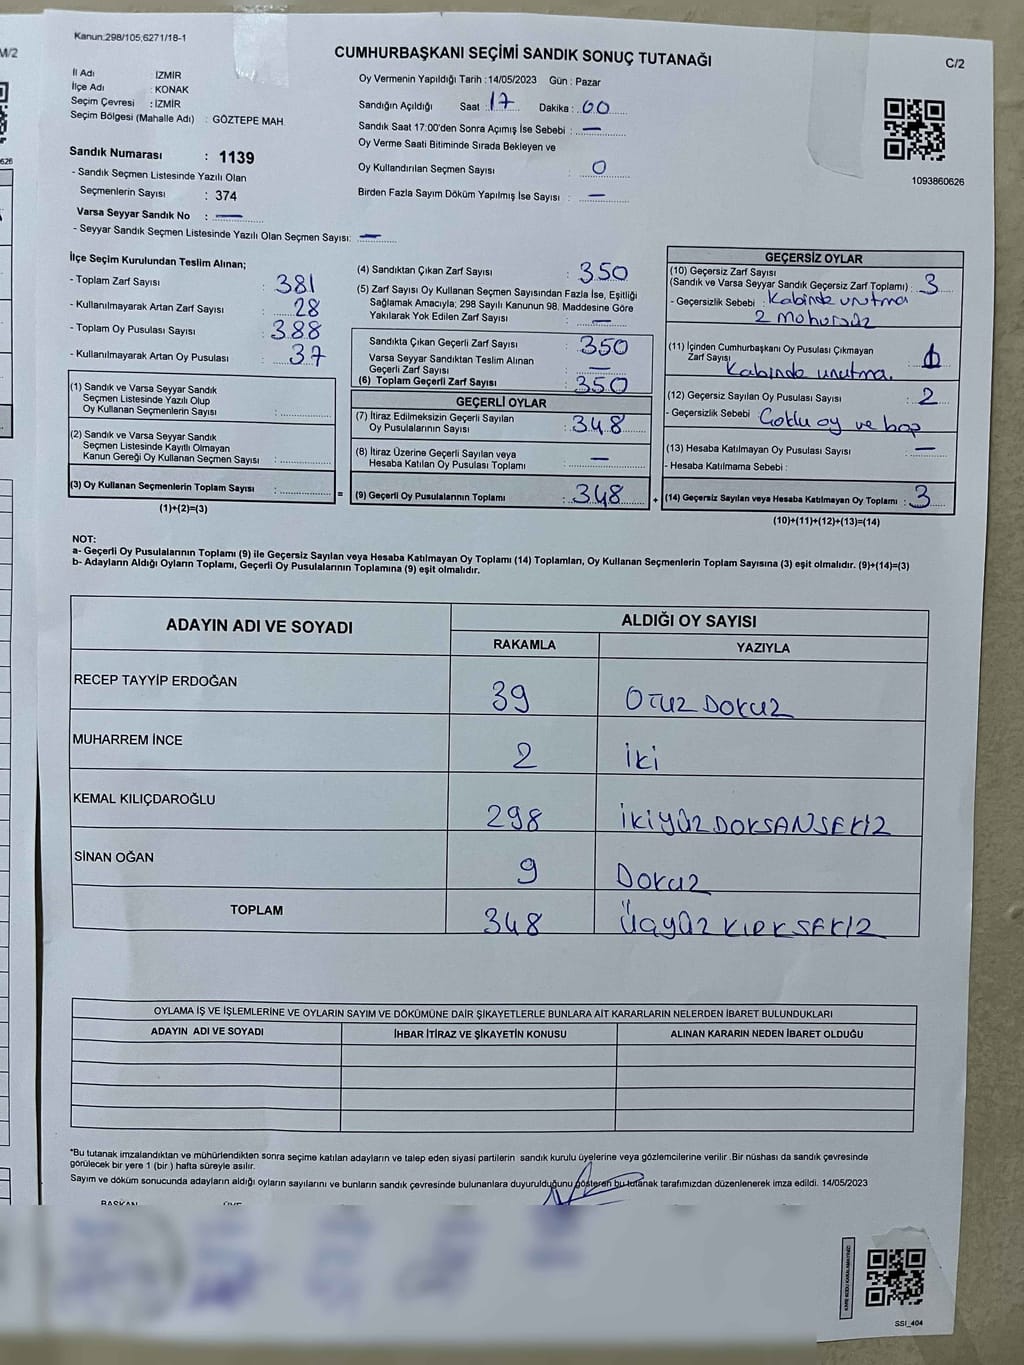 Kanun:298/105,6271/18-1
M/2
CUMHURBAŞKANI SEÇİMİ SANDIK SONUÇ TUTANAĞI
C/2
İl Adı İZMİR
İlçe Adı : KONAK
Seçim Çevresi : İZMİR
Seçim Bölgesi (Mahalle Adı) : GÖZTEPE MAH.
Sandık Numarası : 1139
- Sandık Seçmen Listesinde Yazılı Olan
Seçmenlerin Sayısı : 374
Varsa Seyyar Sandık No : —
- Seyyar Sandık Seçmen Listesinde Yazılı Olan Seçmen Sayısı: —
Oy Vermenin Yapıldığı Tarih : 14/05/2023 Gün : Pazar
Sandığın Açıldığı Saat : 17 Dakika : 00
Sandık Saat 17:00'den Sonra Açımış İse Sebebi : —
Oy Verme Saati Bitiminde Sırada Bekleyen ve
Oy Kullandırılan Seçmen Sayısı : 0
Birden Fazla Sayım Döküm Yapılmış İse Sayısı : —
1093860626
626
İlçe Seçim Kurulundan Teslim Alınan;
- Toplam Zarf Sayısı : 381
- Kullanılmayarak Artan Zarf Sayısı : 28
- Toplam Oy Pusulası Sayısı : 388
- Kullanılmayarak Artan Oy Pusulası : 37
(1) Sandık ve Varsa Seyyar Sandık
Seçmen Listesinde Yazılı Olup
Oy Kullanan Seçmenlerin Sayısı :
(2) Sandık ve Varsa Seyyar Sandık
Seçmen Listesinde Kayıtlı Olmayan
Kanun Gereği Oy Kullanan Seçmen Sayısı :
(3) Oy Kullanan Seçmenlerin Toplam Sayısı :
(1)+(2)=(3)
(4) Sandıktan Çıkan Zarf Sayısı : 350
(5) Zarf Sayısı Oy Kullanan Seçmen Sayısından Fazla İse, Eşitliği
Sağlamak Amacıyla; 298 Sayılı Kanunun 98. Maddesine Göre
Yakılarak Yok Edilen Zarf Sayısı : —
Sandıkta Çıkan Geçerli Zarf Sayısı : 350
Varsa Seyyar Sandıktan Teslim Alınan
Geçerli Zarf Sayısı : —
(6) Toplam Geçerli Zarf Sayısı : 350
GEÇERLİ OYLAR
(7) İtiraz Edilmeksizin Geçerli Sayılan
Oy Pusulalarının Sayısı : 348
(8) İtiraz Üzerine Geçerli Sayılan veya
Hesaba Katılan Oy Pusulası Toplamı : —
= (9) Geçerli Oy Pusulalarının Toplamı : 348 +
GEÇERSİZ OYLAR
(10) Geçersiz Zarf Sayısı
(Sandık ve Varsa Seyyar Sandık Geçersiz Zarf Toplamı) : 3
- Geçersizlik Sebebi : Kabinde unutma
2 mühürsüz
(11) İçinden Cumhurbaşkanı Oy Pusulası Çıkmayan
Zarf Sayısı
Kabinde unutma.
(12) Geçersiz Sayılan Oy Pusulası Sayısı : 2
- Geçersizlik Sebebi : Çoklu oy ve boş
(13) Hesaba Katılmayan Oy Pusulası Sayısı : —
- Hesaba Katılmama Sebebi :
(14) Geçersiz Sayılan veya Hesaba Katılmayan Oy Toplamı : 3
(10)+(11)+(12)+(13)=(14)
NOT:
a- Geçerli Oy Pusulalarının Toplamı (9) ile Geçersiz Sayılan veya Hesaba Katılmayan Oy Toplamı (14) Toplamları, Oy Kullanan Seçmenlerin Toplam Sayısına (3) eşit olmalıdır. (9)+(14)=(3)
b- Adayların Aldığı Oyların Toplamı, Geçerli Oy Pusulalarının Toplamına (9) eşit olmalıdır.
ADAYIN ADI VE SOYADI ALDIĞI OY SAYISI
RAKAMLA YAZIYLA
RECEP TAYYİP ERDOĞAN 39 OTUZ DOKUZ
MUHARREM İNCE 2 İKİ
KEMAL KILIÇDAROĞLU 298 İKİYÜZDOKSANSEKİZ
SİNAN OĞAN 9 DOKUZ
TOPLAM 348 ÜÇYÜZ KIRK SEKİZ
OYLAMA İŞ VE İŞLEMLERİNE VE OYLARIN SAYIM VE DÖKÜMÜNE DAİR ŞİKAYETLERLE BUNLARA AİT KARARLARIN NELERDEN İBARET BULUNDUKLARI
ADAYIN ADI VE SOYADI İHBAR İTİRAZ VE ŞİKAYETİN KONUSU ALINAN KARARIN NEDEN İBARET OLDUĞU
*Bu tutanak imzalandıktan ve mühürlendikten sonra seçime katılan adayların ve talep eden siyasi partilerin sandık kurulu üyelerine veya gözlemcilerine verilir .Bir nüshası da sandık çevresinde
görülecek bir yere 1 (bir ) hafta süreyle asılır.
Sayım ve döküm sonucunda adayların aldığı oyların sayılarını ve bunların sandık çevresinde bulunanlara duyurulduğunu gösteren bu tutanak tarafımızdan düzenlenerek imza edildi. 14/05/2023
BAŞKAN ÜYE
SSİ_404